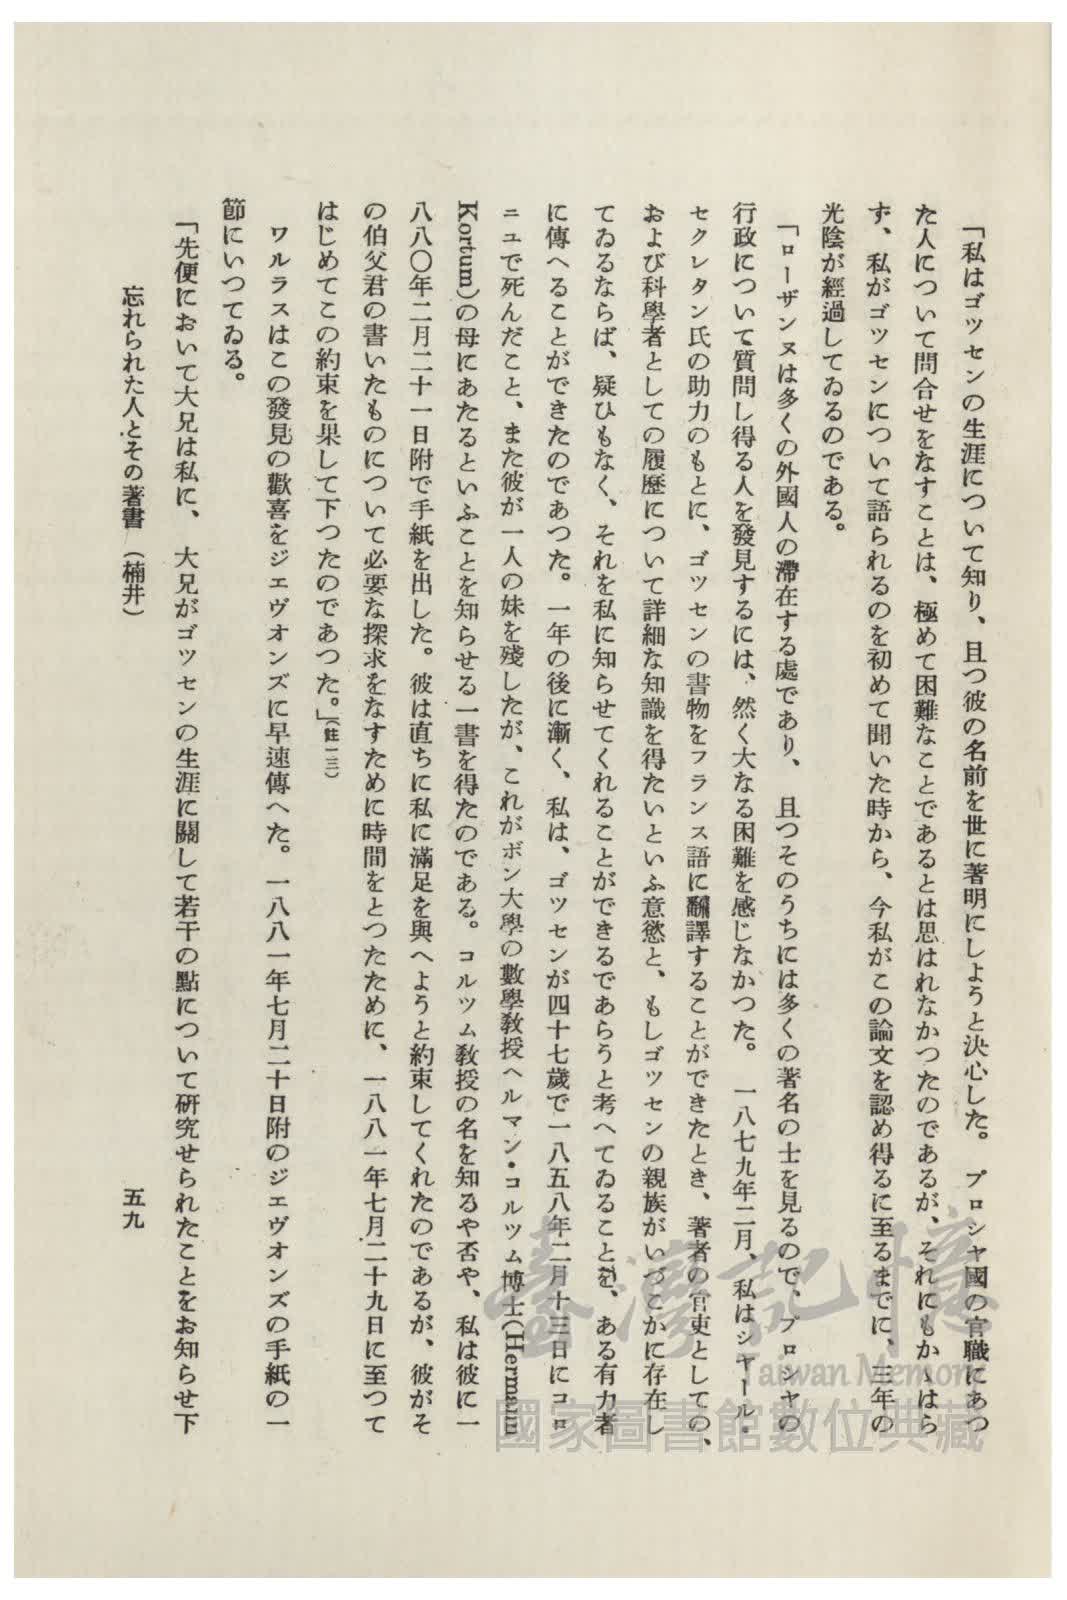 「私はゴツセンの生涯について知り、且つ彼の名前を世に著明にしようと決心した。プロシヤ國の官職にあつ
た人について問合せをなすことは、極めて困難なことであるとは思はれなかつたのであるが、それにもかゝはら
ず、私がゴツセンについて語られるのを初めて聞いた時から、今私がこの論文を認め得るに至るまでに、三年の
光陰が經過してゐるのである。
「ローザンヌは多くの外國人の滯在する處であり、且つそのうちには多くの著名の士を見るので、プロシヤの
行政について質問し得る人を發見するには、然く大なる困難を感じなかつた。一八七九年二月、私はシヤール・
セクレタン氏の助力のもとに、ゴツセンの書物をフランス語に飜譯することができたとき、著者の官吏としての、
および科學者としての履歷について詳細な知識を得たいといふ意慾と、もしゴツセンの親族がいづこかに存在し
てゐるならば、疑ひもなく、それを私に知らせてくれることができるであらうと考へてゐることを、ある有力者
に傳へることができたのであつた。一年の後に漸く、私は、ゴツセンが四十七歲で一八五八年二月十三日にコロ
ニユで死んだこと、また彼が一人の妹を殘したが、これがボン大學の數學敎授ヘルマン・コルツム博士(Hermann
Kortum)の母にあたるといふことを知らせる一書を得たのである。コルツム敎授の名を知るや否や、私は彼に一
八八〇年二月二十一日附で手紙を出した。彼は直ちに私に滿足を與へようと約束してくれたのであるが、彼がそ
の伯父君の書いたものについて必要な探求をなすために時間をとつたために、一八八一年七月二十九日に至つて
はじめてこの約束を果して下つたのであつた。」(註一三)
ワルラスはこの發見の歡喜をジエヴオンズに早速傳へた。一八八一年七月二十日附のジエヴオンズの手紙の一
節にいつてゐる。
「先便において大兄は私に、大兄がゴツセンの生涯に關して若干の點について硏究せられたことをお知らせ下
忘れられた人とその著書(楠井)
五九
臺灣記憶
Taiwan Memory
國家圖書館數位典藏